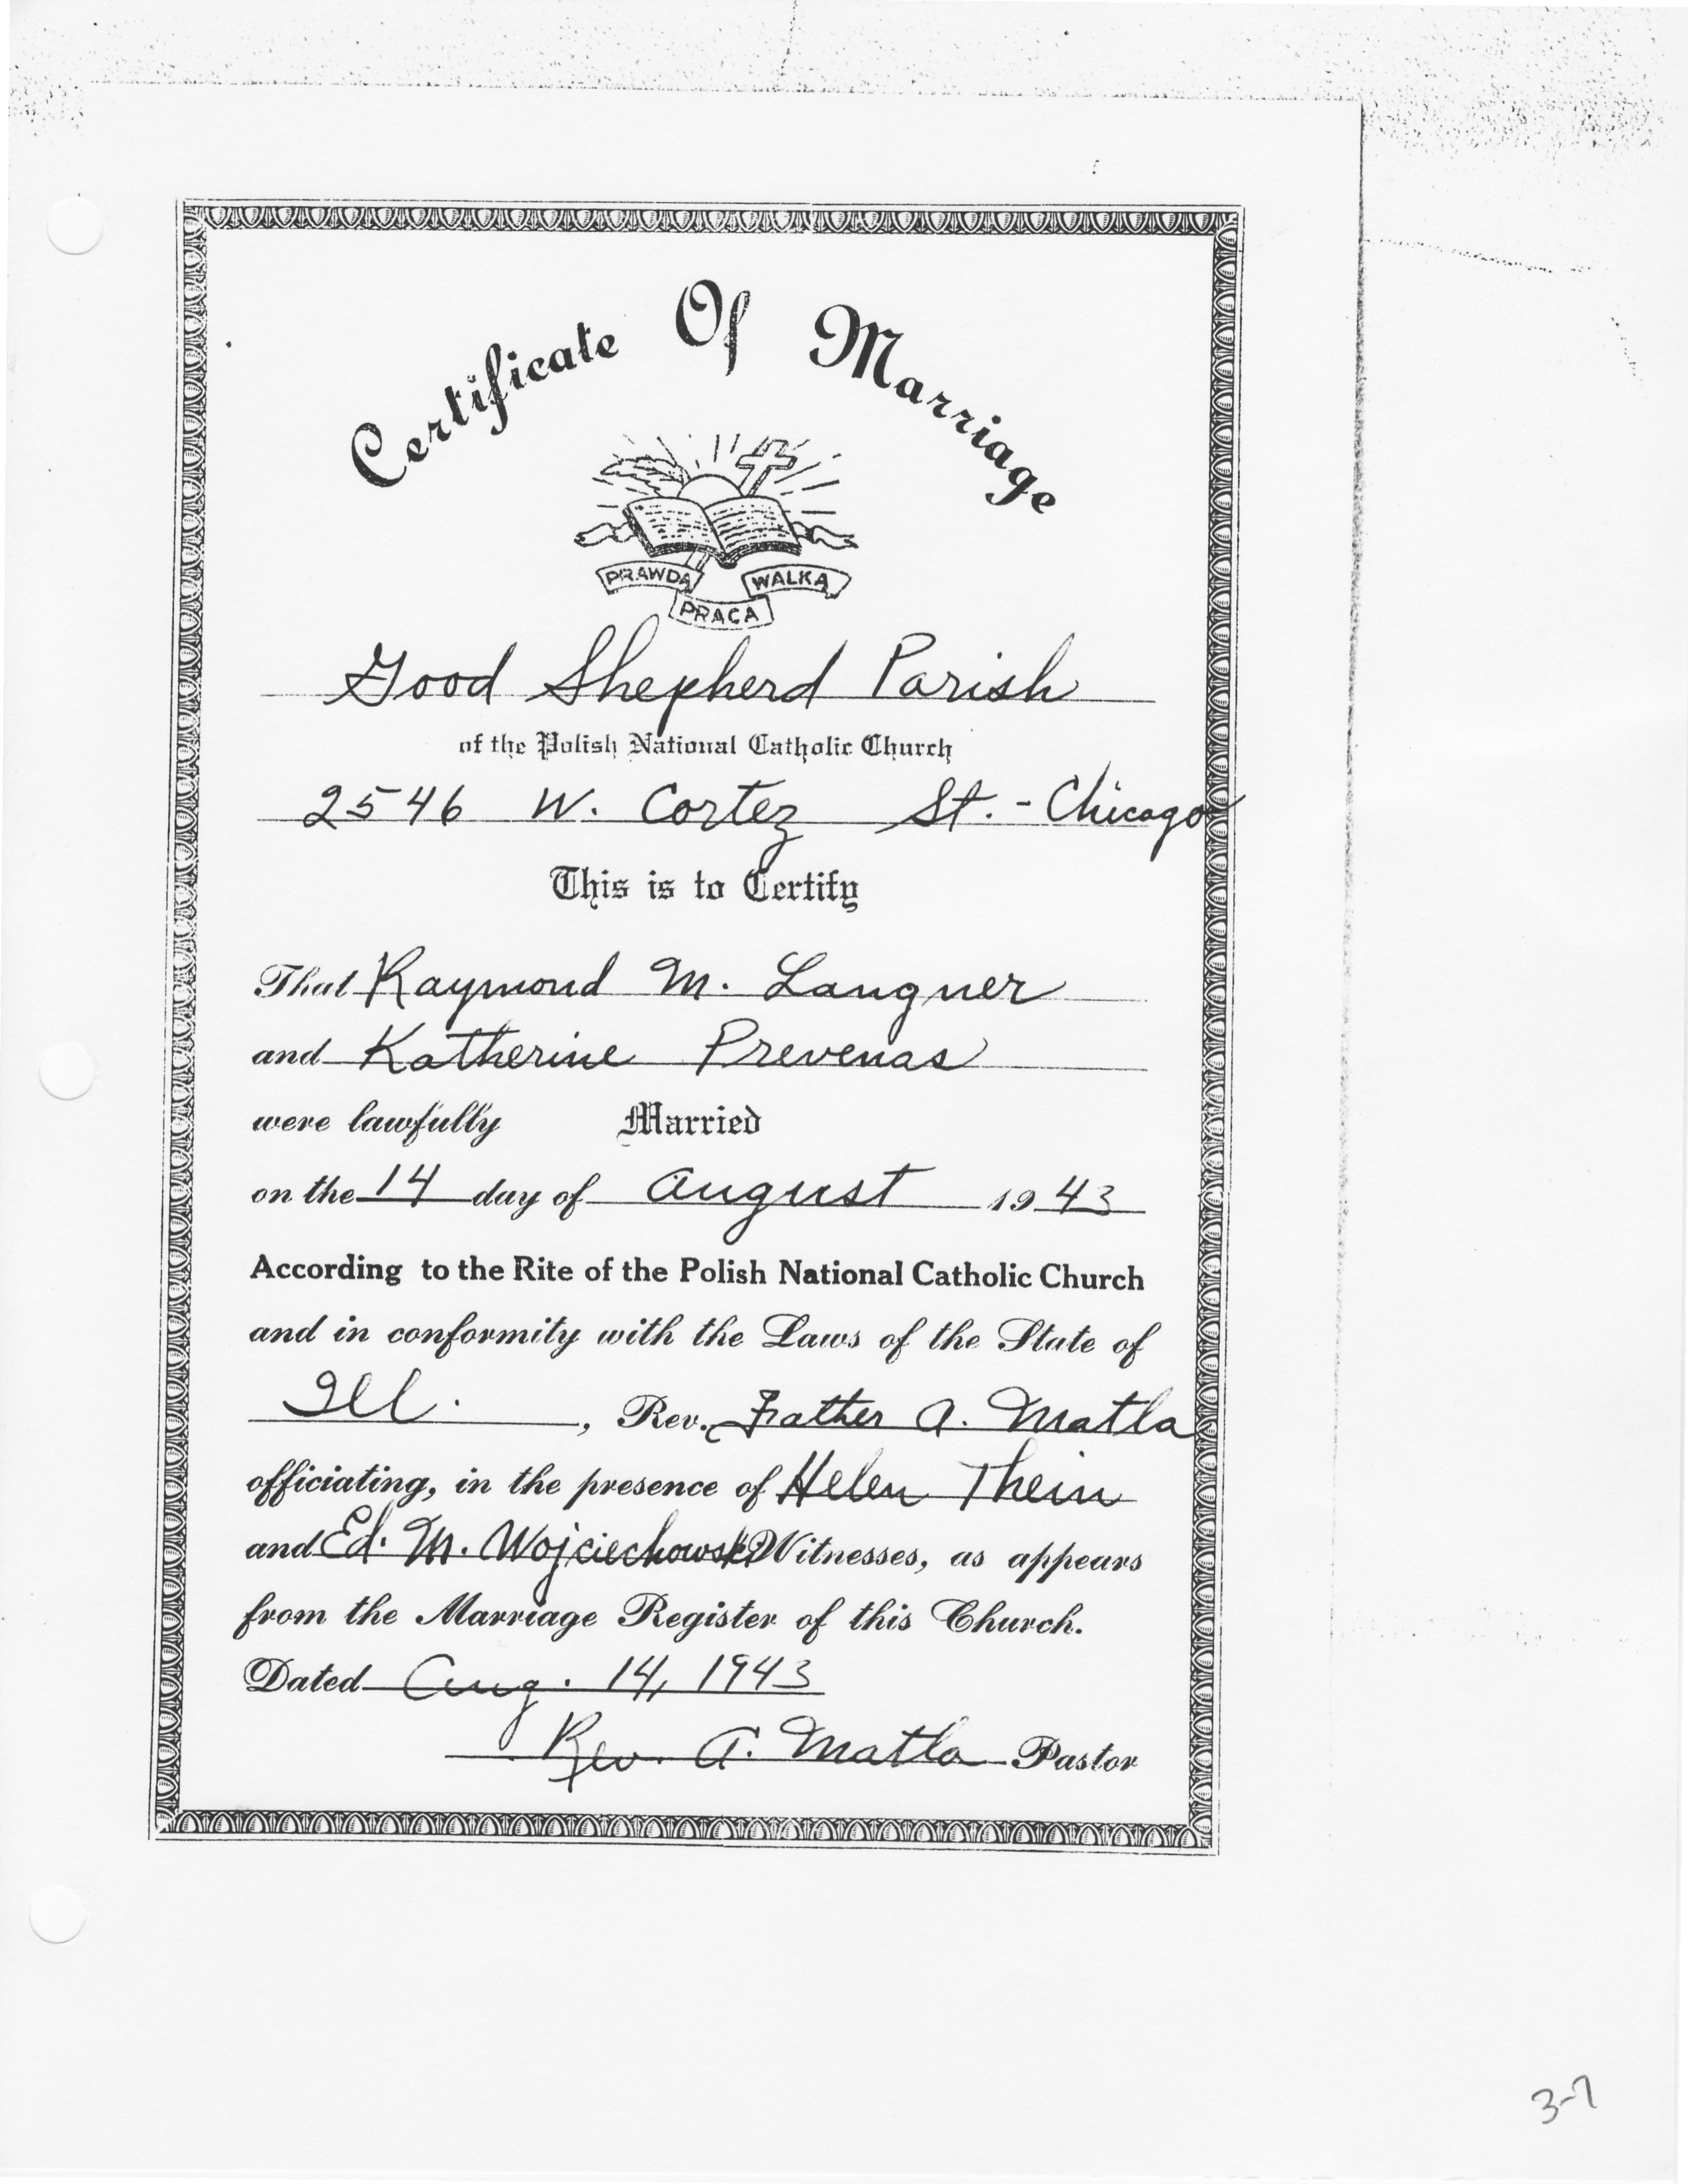 Certificate Of Marriage
PRAWDA PRACA WALKA
Good Shepherd Parish
of the Polish National Catholic Church
2546 W. Cortez St. - Chicago
This is to Certify
That Raymond M. Langner
and Katherine Prevenas
were lawfully Married
on the 14 day of August 1943
According to the Rite of the Polish National Catholic Church
and in conformity with the Laws of the State of
Ill. , Rev. Father A. Matla
officiating, in the presence of Helen Thein
and Ed. M. Wojciechowski Witnesses, as appears
from the Marriage Register of this Church.
Dated Aug. 14, 1943
Rev. A. Matla Pastor
3-7